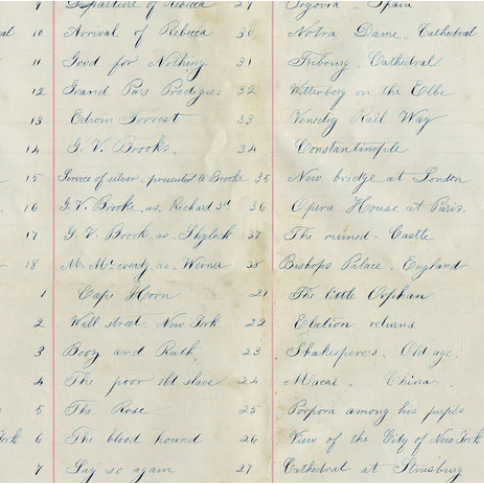 9 Departure of Rebecca 29 Segovia - Spain
10 Arrival of Rebecca 30 Notra Dame. Cathedral
11 Good for Nothing 31 Fribourg. Cathedral
12 Grand Pa's Prodigies 32 Wittenberg on the Elbe
13 Edwin Forrest 33 Rail Way
14 G. V. Brooke. 34 Constantinople
15 Service of silver. presented to Brooke 35 New bridge at London
16 G. V. Brooke. as. Richard 3rd 36 Opera House at Paris.
17 G. V. Brooke as. Shylock 37 The ruined - Castle
18 Mr Mccready as. Werner 38 Bishops Palace. England
1 Cape Horn 21 The little Orphan
2 Wall street. New York. 22 Election returns
3 Booz and Ruth 23 Shakesperes. Old age.
4 The poor old slave 24 Macae. China
5 The Rose 25 Porpora among his pupils
York 6 The blood hound 26 View of the City of New York
7 Say so again 27 Cathedral at Strasburg